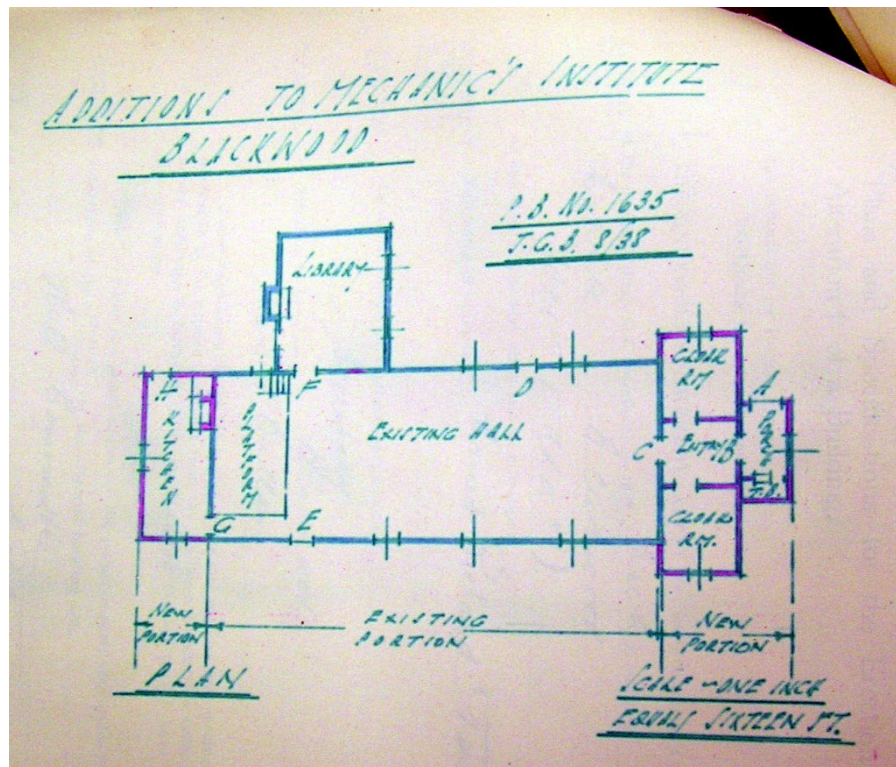 ADDITIONS TO MECHANIC'S INSTITUTE
BLACKWOOD
P.B. NO. 1635
J.G.B. 8/38
LIBRARY
CLOAK
RM.
A
H
F
D
PLATFORM
EXISTING HALL
C
ENTRY
B
PORCH
T.B.
G
E
CLOAK
RM.
NEW
PORTION
EXISTING
PORTION
NEW
PORTION
PLAN
SCALE ~ ONE INCH
EQUALS SIXTEEN FT.